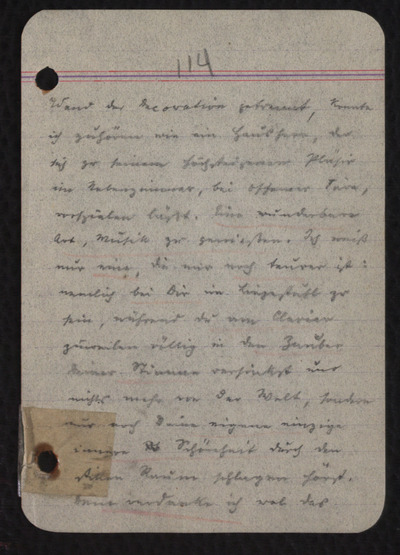 114
Wand der Decoration getrennt, konnte
ich zuhören wie ein Hausherr, der
sich zu seinem höchsteigenen Pläsir
im Nebenzimmer, bei offener Türe,
vorspielen läßt. Eine wunderbare
Art, Musik zu geniessen. Ich weiß
nur eine, die mir noch teurer ist:
nemlich bei Dir im Liegestuhl zu
sein, während du am Clavier
zuweilen völlig in den Zauber
Deiner Stimme versinkst und
nichts mehr von der Welt, sondern
nur noch Deine eigene einzige
innere Schönheit durch den
stillen Raum schlagen hörst.
verdanke ich wol das